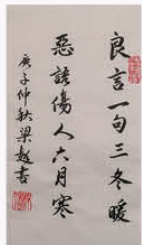 良言一句三冬暖
惡語傷人六月寒
庚子仲秋梁趪書